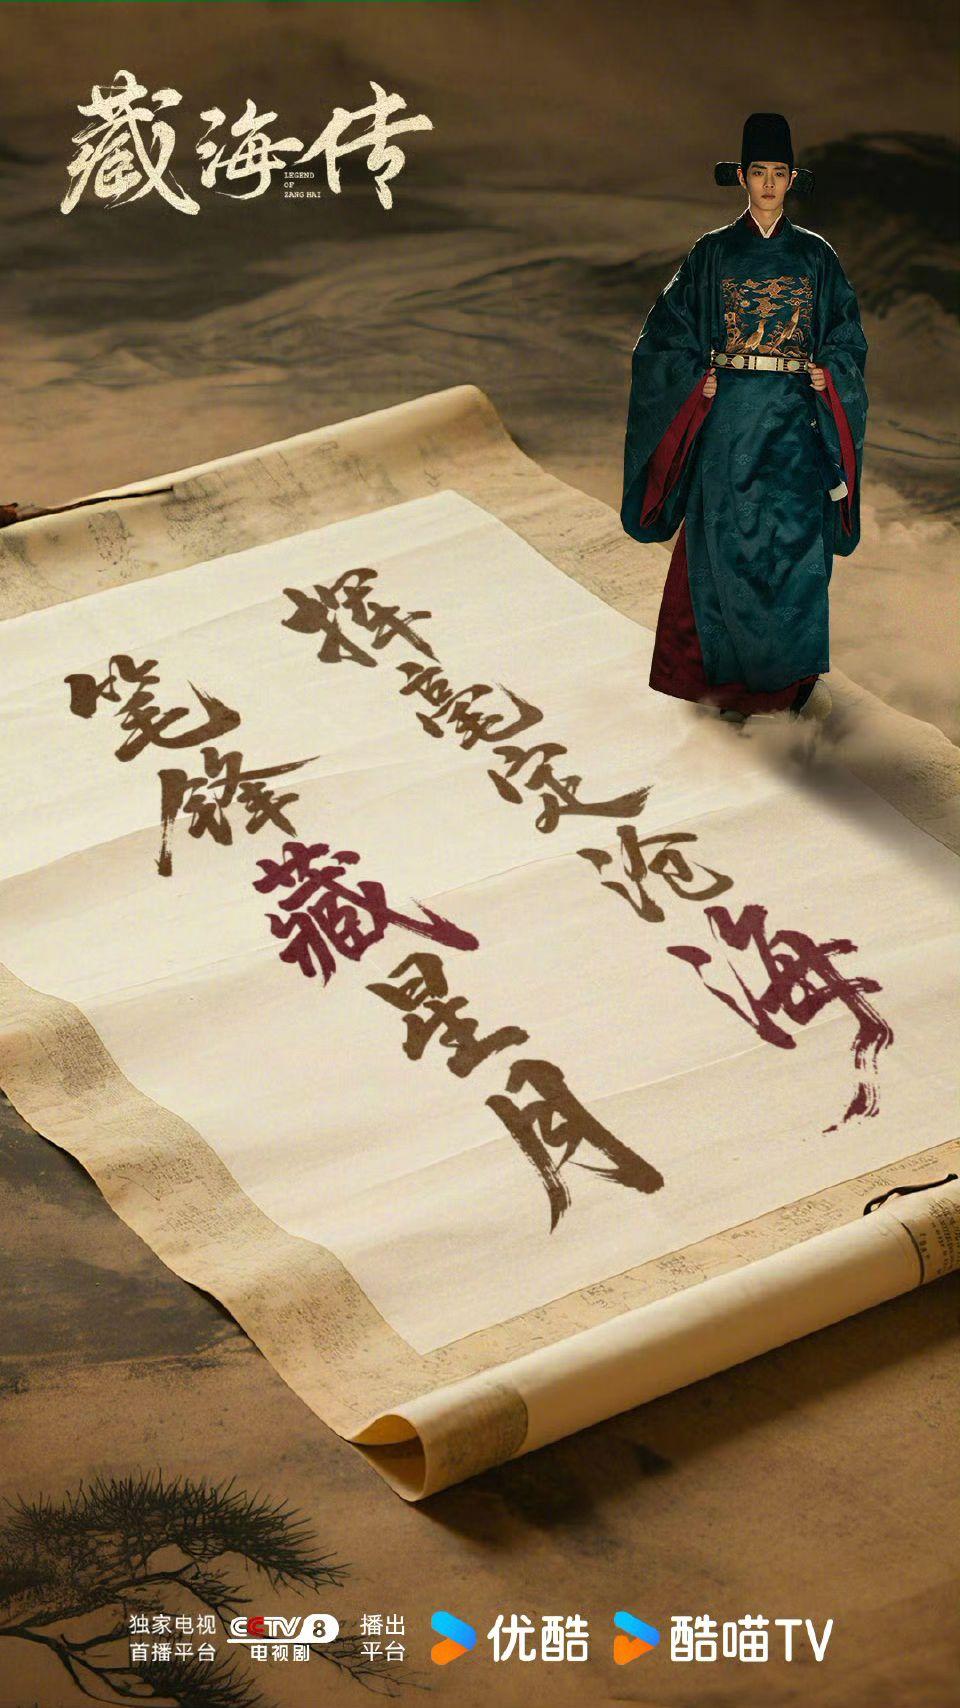 藏海传
LEGEND
OF
ZANG HAI
挥毫定沧海
笔锋藏星月
独家电视
首播平台
CCTV 8
电视剧
播出
平台
优酷
酷喵TV